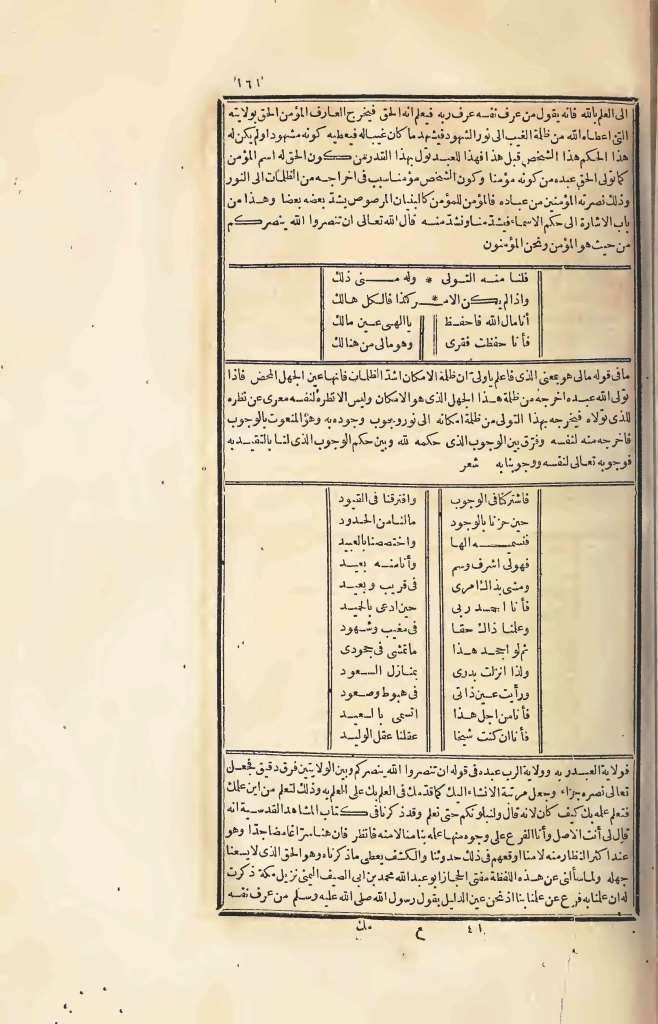 '١٦١'
الى العلم بالله فانه يقول من عرف نفسه عرف ربه فيعلم انه الحق فيخرج العارف المؤمن الحق بولايته
التى اعطاه الله من ظلمة الغيب الى نور الشهود فيشهد ما كان غيبا له فيعطيه كونه مشهودا ولم يكن له
هذا الحكم من هذا الشخص قبل هذا فهذا للعبد تول بهذا القدر من كون الحق له اسم المؤمن
كما تولى الحق عبده من كونه مؤمنا وكون الشخص مؤمنا سبب فى اخراجه من الظلمات الى النور
وذلك نصرته المؤمنين من عباده فالمؤمن للمؤمن كالبنيان المرصوص يشد بعضه بعضا وهذا من
باب الاشارة الى حكم الاسماء فيشد منا ونشد منه قال الله تعالى ان تنصروا الله ينصركم
من حيث هو المؤمن ونحن المؤمنون
فلنا منه التولى * وله منى ذلك
واذا لم يكن الامـ * ـر كذا فالكل هالك
أنا مال الله فاحفظ يا الهى عين مالك
فأنا حفظت فقرى وهو مالى من هنالك
ما فى قوله مالى هو بمعنى الذى فاعلم ياولى ان ظلمة الامكان اشد الظلمات فانها عين الجهل المحض فاذا
تولى الله عبده اخرجه من ظلمة هذا الجهل الذى هو الامكان وليس الا نظره لنفسه معرى عن نظره
للذى تولاه فيخرجه بهذا التولى من ظلمة امكانه الى نور وجوب وجوده به وهو المنعوت بالوجوب
فاخرجه منه لنفسه وفرق بين الوجوب الذى حكمه لله وبين حكم الوجوب الذى لنا بالتقييد به
فوجوبه تعالى لنفسه ووجوبنا به شعر
فاشتركنا فى الوجوب وافترقنا فى القيود
حين حزنا بالوجود ما لنا من الحدود
فنسميه الها واختصصنا بالعبيد
فهو لى اشرف وسم وأنا منه بعيد
ومشى بذاك امرى فى قريب وبعيد
فأنا احمد ربى حين ادعى بالحميد
وعلمنا ذاك حقا فى مغيب وشهود
ثم لو اجحد هذا ما تمشى فى جحودى
ولذا انزلت بدرى بمنازل السعود
ورأيت عين ذاتى فى هبوط وصعود
فأنا من اجل هذا اتسمى بالعبيد
فأنا ان كنت شيخا عقلنا عقل الوليد
فولاية العبد ربه وولاية الرب عبده فى قوله ان تنصروا الله ينصركم وبين الولايتين فرق دقيق فجعل
تعالى نصره جزاء وجعل مرتبة الانشاء اليك كما قدمك فى العلم بك على العلم به وذلك لتعلم من اين علمك
فتعلم علمه بك كيف كان لانه قال ولنبلونكم حتى نعلم وقد ذكرنا فى كتاب المشاهد القدسية انه
قال لى أنت الاصل وأنا الفرع على وجوه منها علمه بنا منا لا منه فانظر فان هنا سرا غامضا جدا وهو
عند اكثر النظار منه لا منا اوقعهم فى ذلك حدوثنا والكشف يعطى ما ذكرناه وهو الحق الذى لا يسعنا
جهله ولما سألنى عن هذه اللفظة مفتى الحجاز ابو عبد الله محمد بن ابى الصيف اليمنى نزيل مكة ذكرت
له ان علمنا به فرع عن علمنا بنا اذ نحن عين الدليل يقول رسول الله صلى الله عليه وسلم من عرف نفسه
٤١ مك